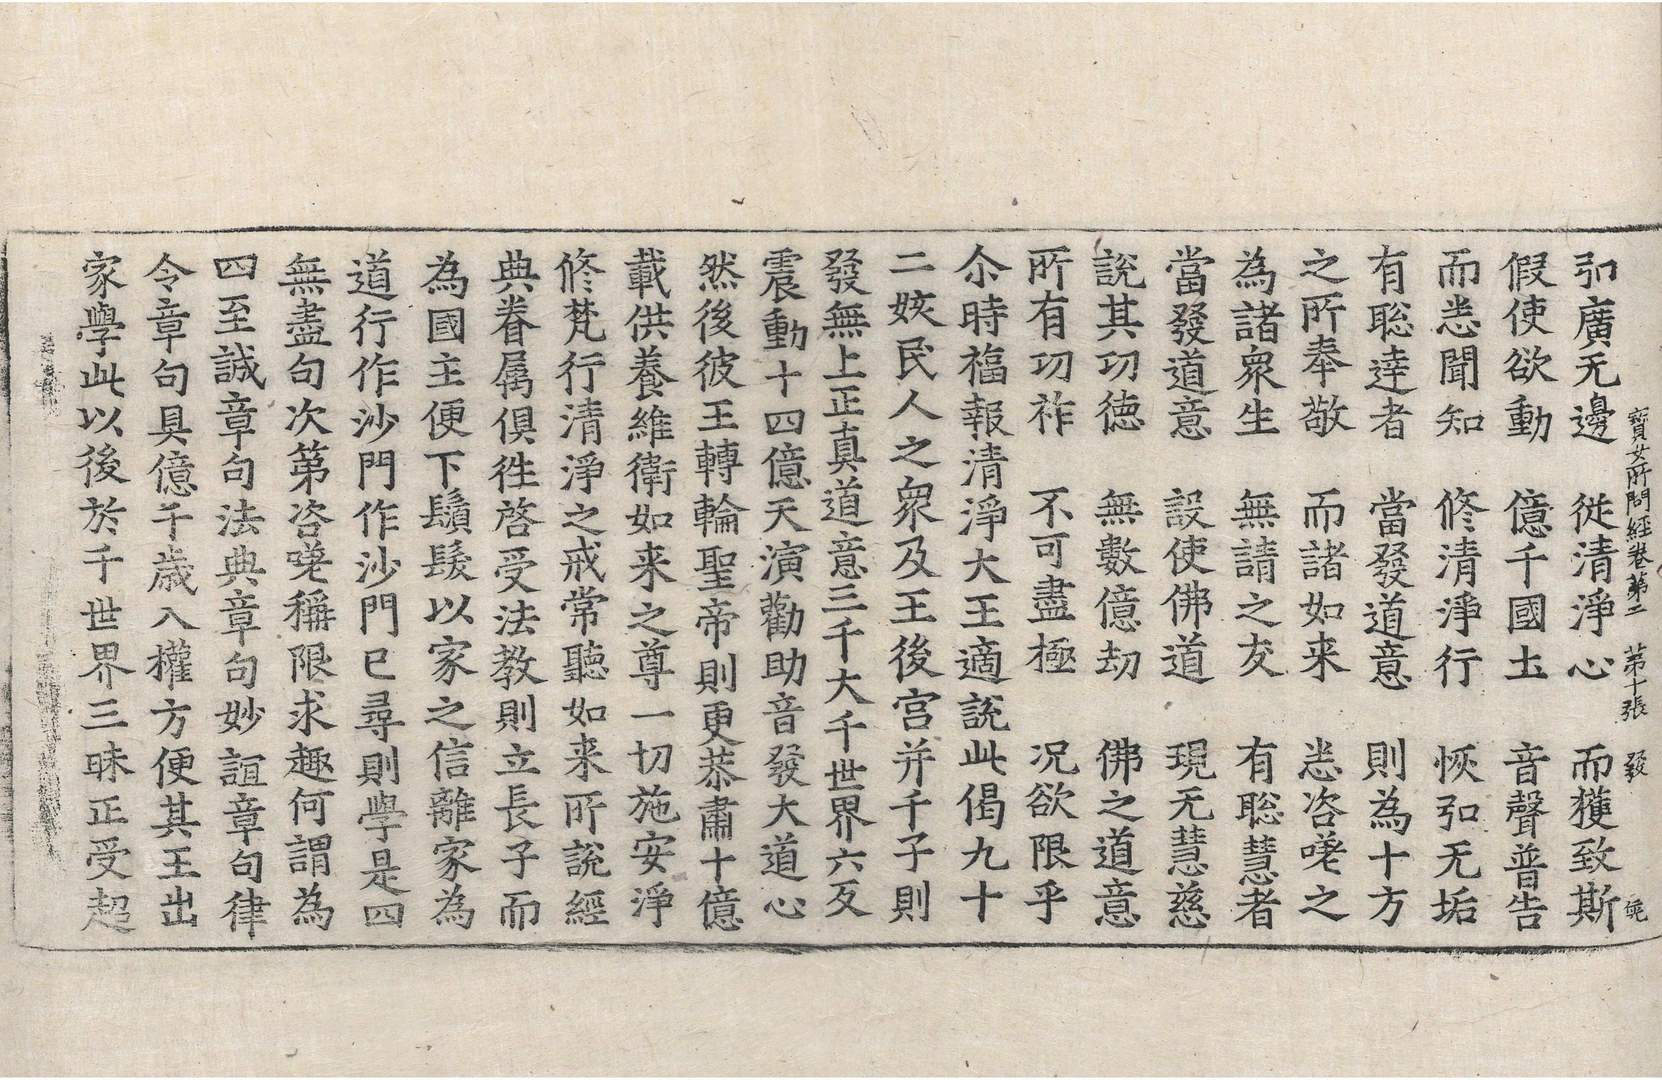 寶女所問經卷第二 第十張 發
弘廣无邊 從清淨心 而獲致斯
假使欲動 億千國土 音聲普告
而悉聞知 修清淨行 恢弘无垢
有聡達者 當發道意 則為十方
之所奉敬 而諸如来 悉咨嗟之
為諸衆生 無請之友 有聡慧者
當發道意 設使佛道 現无慧慈
說其功德 無數億劫 佛之道意
所有功祚 不可盡極 况欲限乎
尒時福報清淨大王適說此偈九十
二姟民人之衆及王後宫并千子則
發無上正真道意三千大千世界六反
震動十四億天演勸助音發大道心
然後彼王轉輪聖帝則更恭肅十億
載供養維衛如来之尊一切施安淨
修梵行清淨之戒常聽如来所說經
典眷属俱徃啓受法教則立長子而
為國主便下鬚髮以家之信離家為
道行作沙門作沙門已尋則學是四
無盡句次第咨嗟稱限求趣何謂為
四至誠章句法典章句妙誼章句律
令章句具億千歳入權方便其王出
家學此以後於千世界三昧正受超